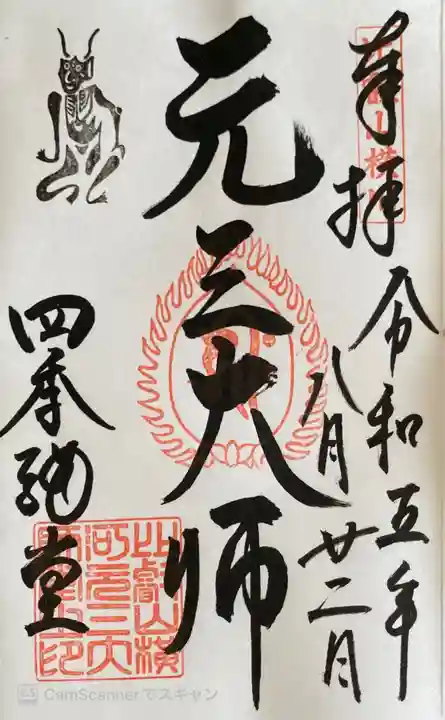 奉拝
令和五年
八月廿二日
元三大師
四季講堂
比叡山横
河元三大
師堂之印
CamScannerでスキャン